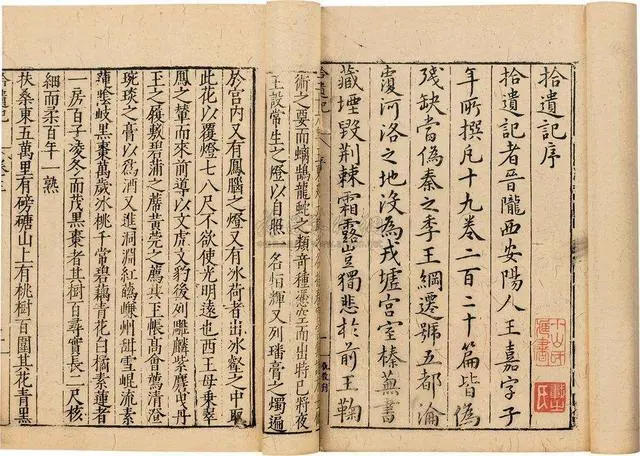 拾遺記序
拾遺記者晉隴西安陽人王嘉字子
年所撰凡十九卷二百二十篇皆為
殘缺當偽秦之季王綱遷號五都淪
覆河洛之地沒為戎墟宮室榛蕪書
藏堙毀荆棘霜露豈獨悲於前王鞠
拾遺記
術之要而蠕鵠龍蛇之類音種憑空而出時已將夜
王設常生之燈以自照一名恒輝又列璠膏之燭遍
於宮內又有鳳腦之燈又有冰荷者出冰壑之中取
此花以覆燈七八尺不欲使光明遠也西王母乘翠
鳳之輦而來前導以文虎文豹後列雕麟紫麏曳丹
玉之履敷碧蒲之蓆黃莞之薦共玉帳高會薦清澄
琬琰之膏以為酒又進洞淵紅蘤嵰州甜雪崐流素
蓮陰岐黑棗萬歲冰桃千常碧藕青花白橘素蓮者
一房百子凌冬而茂黑棗者其樹百尋實長二尺核
細而柔百年一熟
扶桑東五萬里有磅磄山上有桃樹百圍其花青黑
拾遺記 卷三